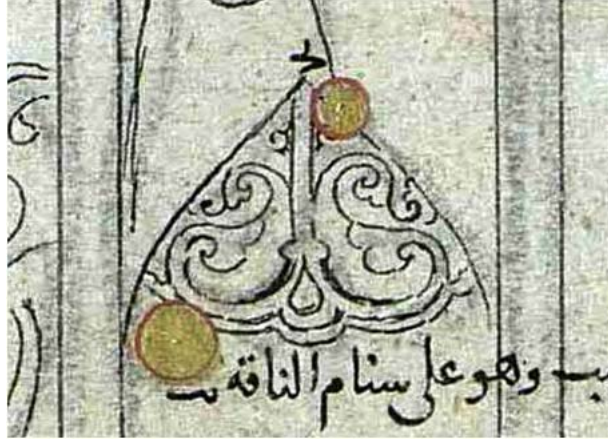 ب وهو على سنام الناقة